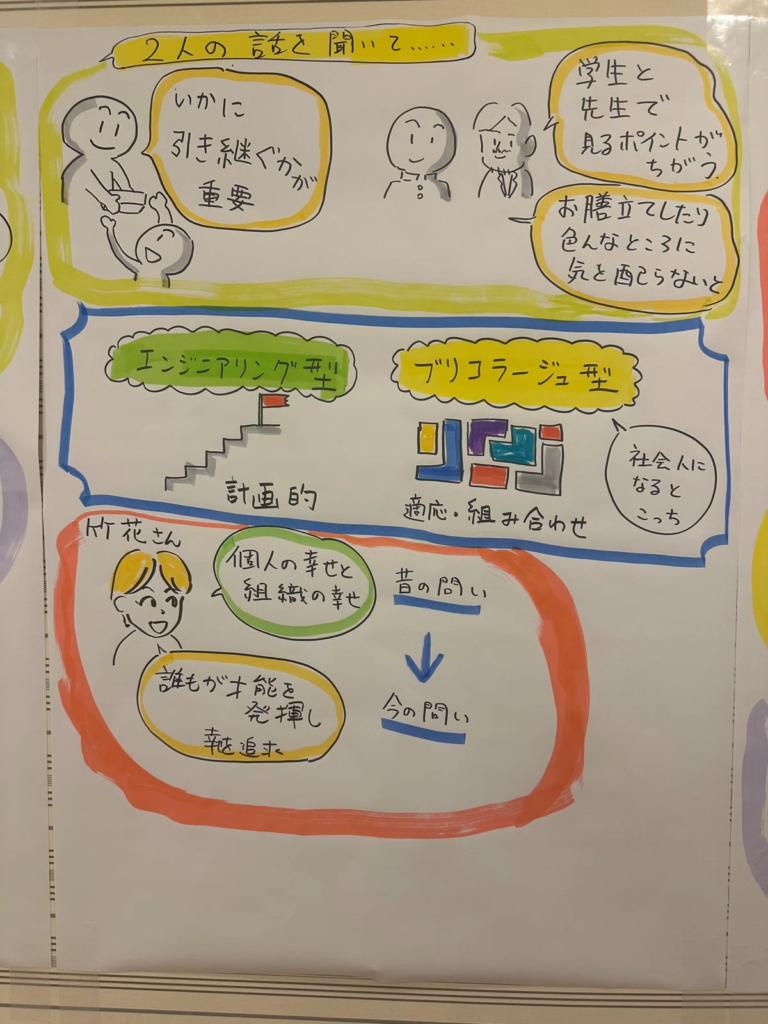 2人の話を聞いて……
いかに
引き継ぐかが
重要
学生と
先生で
見るポイントが
ちがう
お膳立てしたり
色んなところに
気を配らないと
エンジニアリング型
計画的
ブリコラージュ型
適応・組み合わせ
社会人に
なると
こっち
竹花さん
個人の幸せと
組織の幸せ
昔の問い
誰もが才能を
発揮し
幸を追求
今の問い